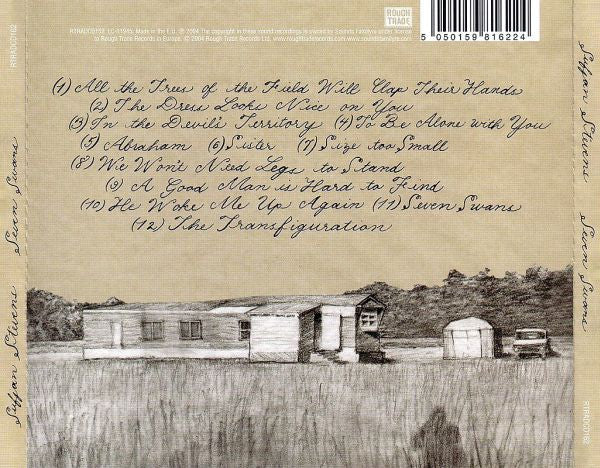 RTRADCD162 LC-01945. Made in the E.U. ℗ 2004 The copyright in these sound recordings is owned by Sounds Familyre under license
to Rough Trade Records in Europe. © 2004 Rough Trade Records Ltd. www.roughtraderecords.com www.soundsfamilyre.com
ROUGH
TRADE
5 050159 816224
(1) All the Trees of the Field Will Clap Their Hands
(2) The Dress Looks Nice on You
(3) In the Devil's Territory (4) To Be Alone with You
(5) Abraham (6) Sister (7) Size too Small
(8) We Won't Need Legs to Stand
(9) A Good Man is Hard to Find
(10) He Woke Me Up Again (11) Seven Swans
(12) The Transfiguration
Sufjan Stevens Seven Swans RTRADCD162
Sufjan Stevens Seven Swans RTRADCD162